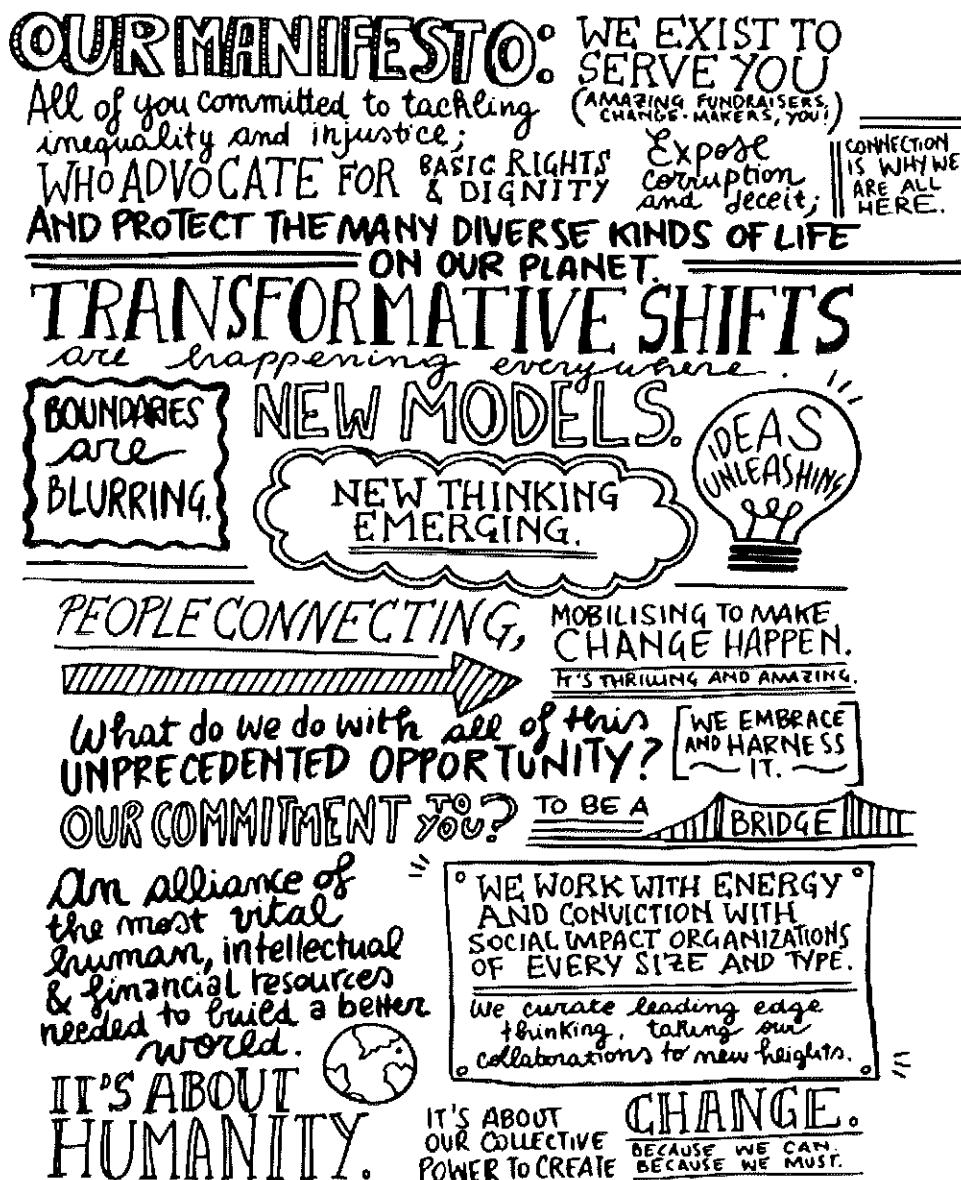 OUR MANIFESTO:
WE EXIST TO
SERVE YOU
(AMAZING FUNDRAISERS,
CHANGE-MAKERS, YOU!)
All of you committed to tackling
inequality and injustice;
WHO ADVOCATE FOR
BASIC RIGHTS
& DIGNITY
Expose
corruption
and deceit;
CONNECTION
IS WHY WE
ARE ALL
HERE.
AND PROTECT THE MANY DIVERSE KINDS OF LIFE
ON OUR PLANET.
TRANSFORMATIVE SHIFTS
are happening everywhere.
BOUNDARIES
are
BLURRING.
NEW MODELS.
NEW THINKING
EMERGING.
IDEAS
UNLEASHING
PEOPLE CONNECTING,
MOBILISING TO MAKE
CHANGE HAPPEN.
IT'S THRILLING AND AMAZING.
What do we do with all of this
UNPRECEDENTED OPPORTUNITY?
[WE EMBRACE
AND HARNESS
IT.]
OUR COMMITMENT TO
YOU?
TO BE A
BRIDGE
An alliance of
the most vital
human, intellectual
& financial resources
needed to build a better
world.
WE WORK WITH ENERGY
AND CONVICTION WITH
SOCIAL IMPACT ORGANIZATIONS
OF EVERY SIZE AND TYPE.
We curate leading edge
thinking, taking our
collaborations to new heights.
IT'S ABOUT
HUMANITY.
IT'S ABOUT
OUR COLLECTIVE
POWER TO CREATE
CHANGE.
BECAUSE WE CAN.
BECAUSE WE MUST.